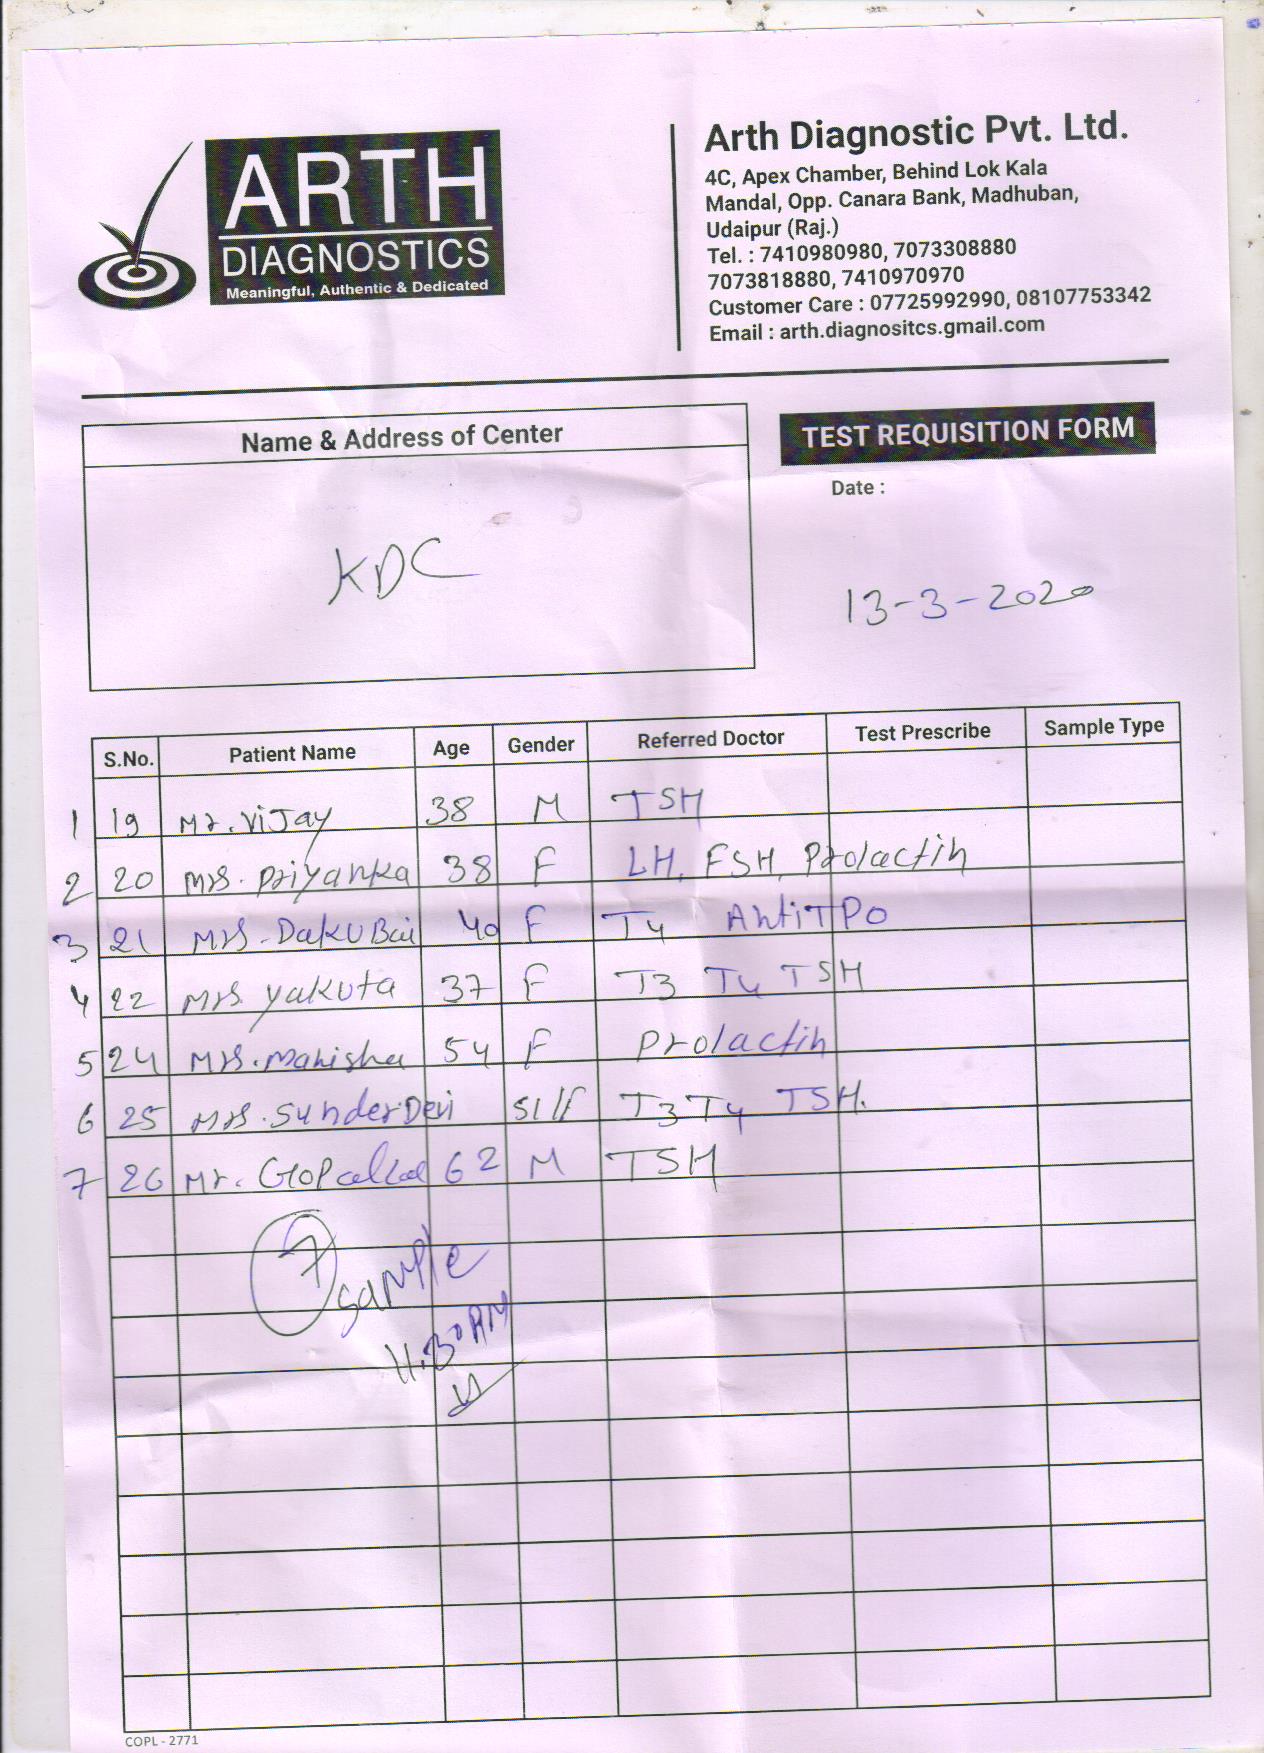 ARTH
DIAGNOSTICS
Meaningful, Authentic & Dedicated
Arth Diagnostic Pvt. Ltd.
4C, Apex Chamber, Behind Lok Kala
Mandal, Opp. Canara Bank, Madhuban,
Udaipur (Raj.)
Tel. : 7410980980, 7073308880
7073818880, 7410970970
Customer Care : 07725992990, 08107753342
Email : arth.diagnositcs.gmail.com
Name & Address of Center
KDC
TEST REQUISITION FORM
Date :
13-3-2020
S.No. Patient Name Age Gender Referred Doctor Test Prescribe Sample Type
1 19 Mr. Vijay 38 M TSH
2 20 Mrs. Priyanka 38 F LH, FSH, Prolactin
3 21 Mrs. Daku Bai 40 F T4 Anti TPO
4 22 Mrs. Yakuta 37 F T3 T4 TSH
5 24 Mrs. Manisha 54 F Prolactin
6 25 Mrs. Sunder Devi 51/F T3 T4 TSH.
7 26 Mr. Gopallal 62 M TSH
7 Sample
11.30 AM
COPL - 2771